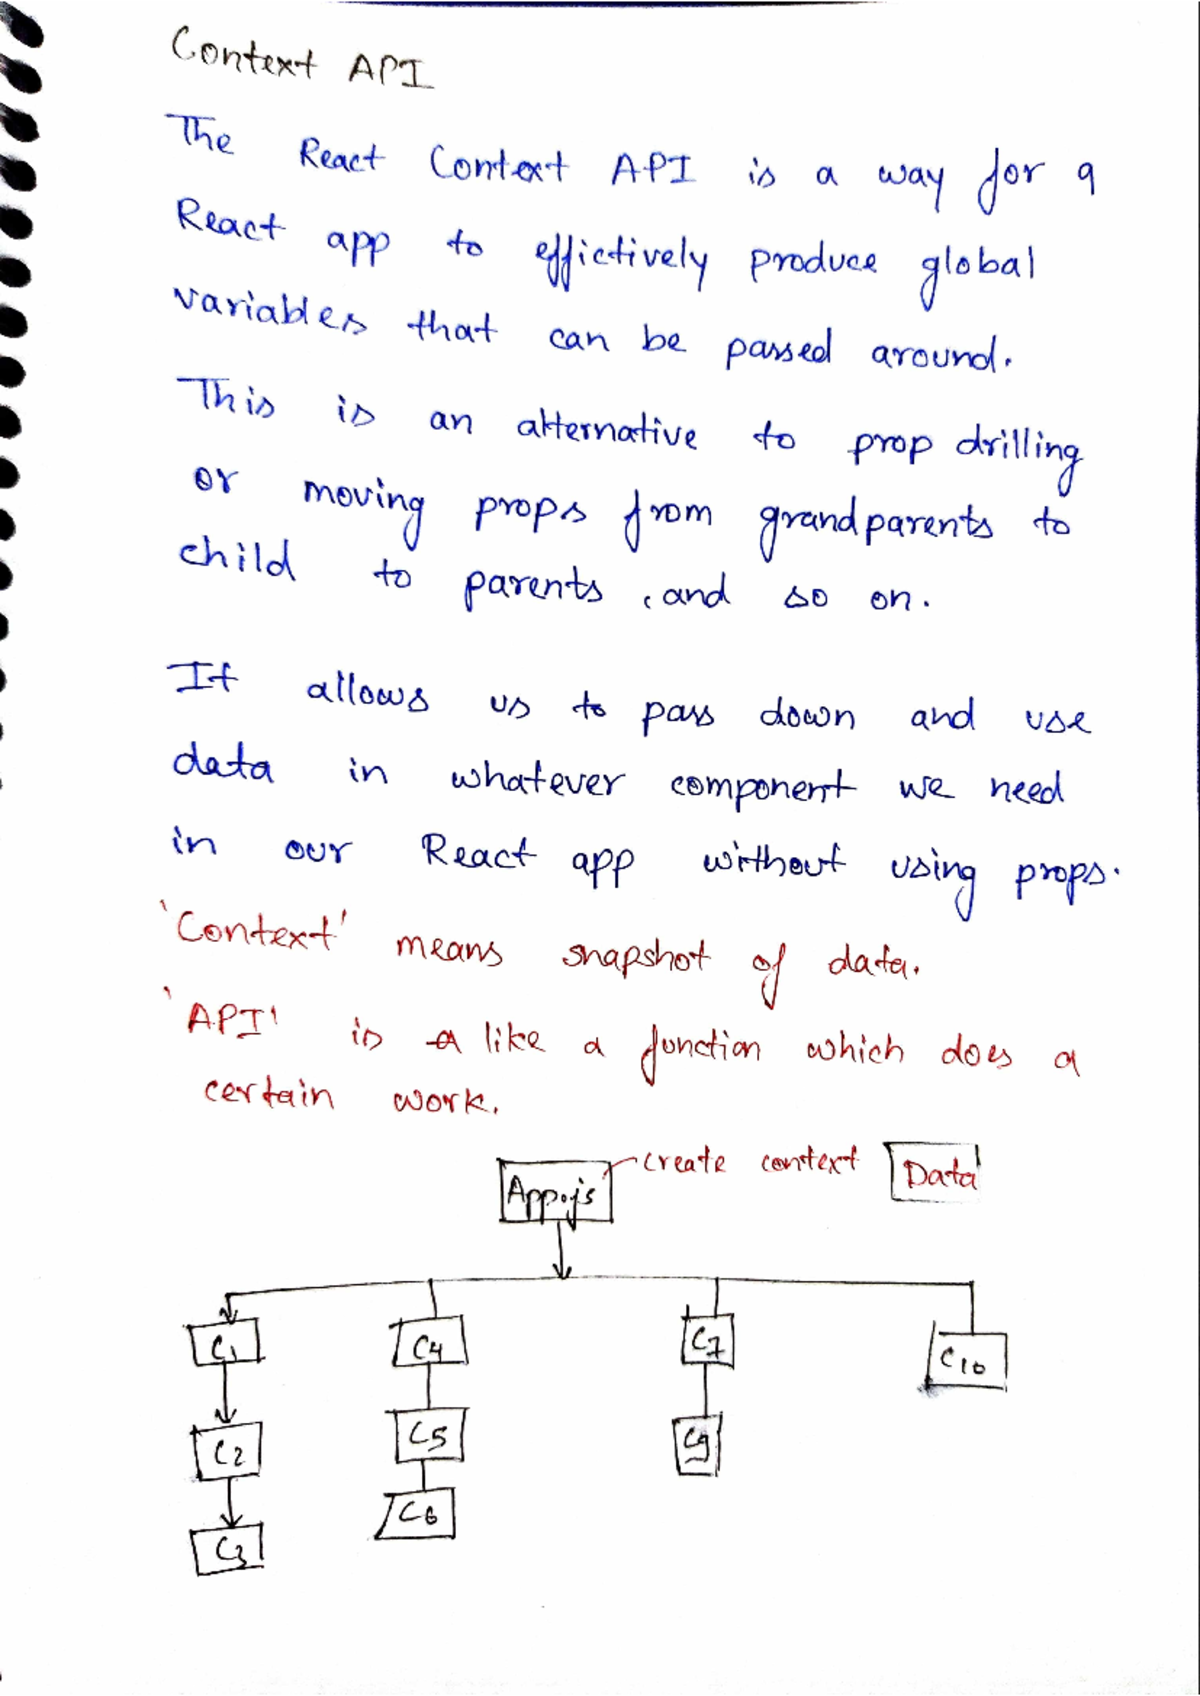 Context API
The React Context API is a way for a
React app to effictively produce global
variables that can be passed around.
This is an alternative to prop drilling
or moving props from grandparents to
child to parents, and so on.
It allows us to pass down and use
data in whatever component we need
in our React app without using props.
'Context' means snapshot of data.
'API' is a like a function which does a
certain work.
App.js create context Data
C1 C4 C7 C10
C2 C5 C9
C3 C6